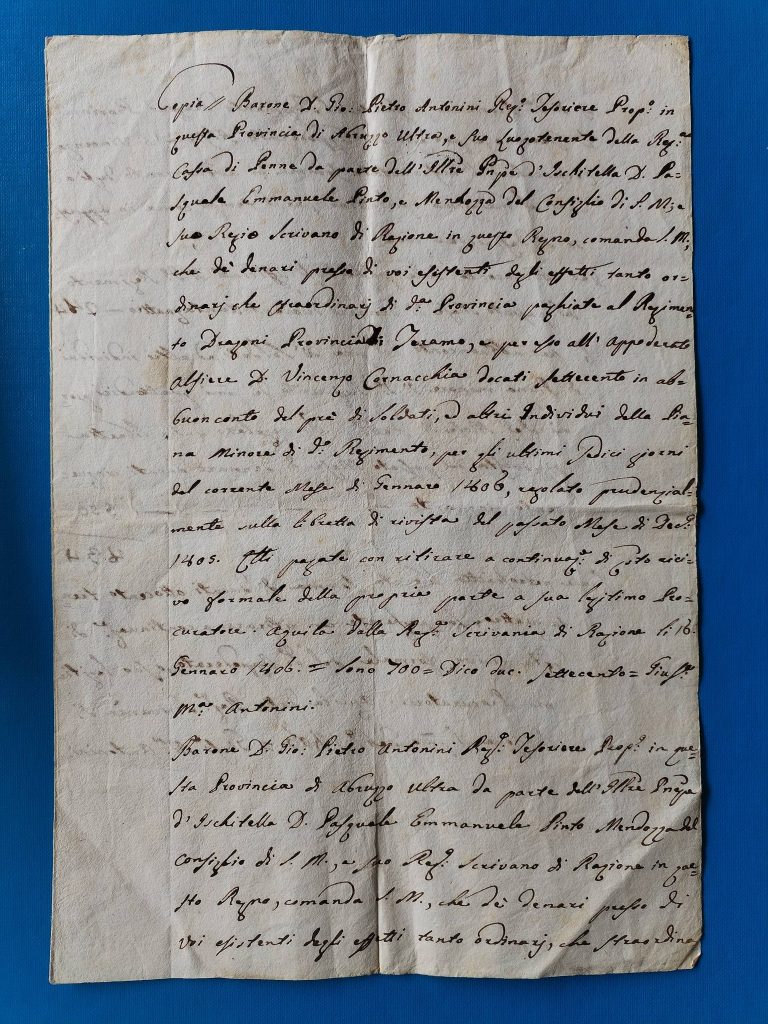 Copia // Barone D. Gio: Pietro Antonini Reg.º Tesoriere Prop.º in
questa Provincia di Abruzzo Ultra, e suo Luogotenente della Reg.ª
Cassa di Penne da parte dell' Ill̃re Pñpe d'Ischitella D. Pa-
squale Emmanuele Pinto, e Mendozza del Consiglio di S. M., e
suo Regio Scrivano di Razione in questo Regno, comanda S. M.,
che de' denari presso di voi esistenti degli effetti tanto or-
dinarj che straordinarj di d.ª Provincia paghiate al Regimen-
to Dragoni Provinciali di Teramo, e per esso all' Appoderato
Alfiere D. Vincenzo Cornacchia docati settecento in ab-
buonconto del prè di Soldati, ed altri Individui della Pia-
na Minore di d.º Regimento, per gli ultimi sedici giorni
del corrente Mese di Gennaro 1806, regolato prudenzial-
mente sulla libretta di rivista del passato Mese di Dec.º
1805. Essi pagate con ritirare a continuaz.º di q̃sto rici-
vo formale della propria parte a sua legitimo Pro-
curatore. Aquila dalla Reg.ª Scrivania di Razione li 16.
Gennaro 1806. = Sono 700 = Dico duc. settecento = Gius.º
M.ª Antonini.
Barone D. Gio: Pietro Antonini Reg.º Tesoriere Prop.º in que-
sta Provincia di Abruzzo Ultra da parte dell' Ill̃re Pñpe
d'Ischitella D. Pasquale Emmanuele Pinto Mendozza del
Consiglio di S. M., e suo Reg.º Scrivano di Razione in que-
sto Regno, comanda S. M., che de' denari presso di
voi esistenti degli effetti tanto ordinarj, che straordina